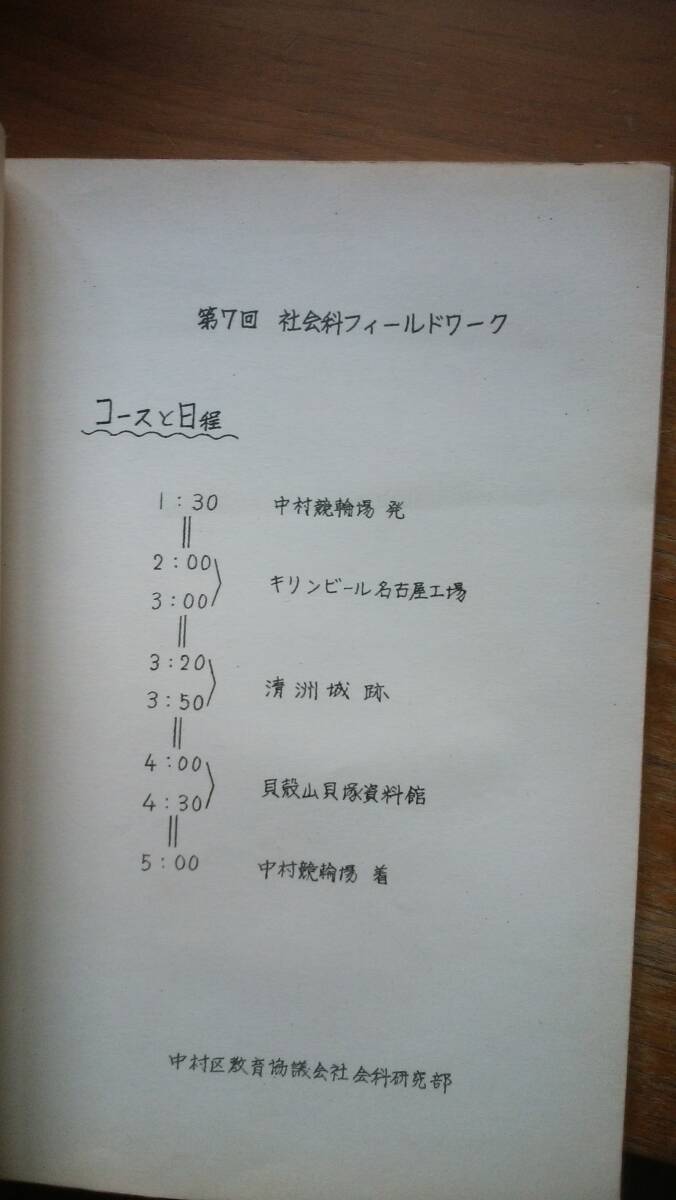 第7回 社会科フィールドワーク
コースと日程
1:30 中村競輪場 発
2:00
3:00 キリンビール名古屋工場
3:20
3:50 清洲城跡
4:00
4:30 貝殻山貝塚資料館
5:00 中村競輪場 着
中村区教育協議会社会科研究部